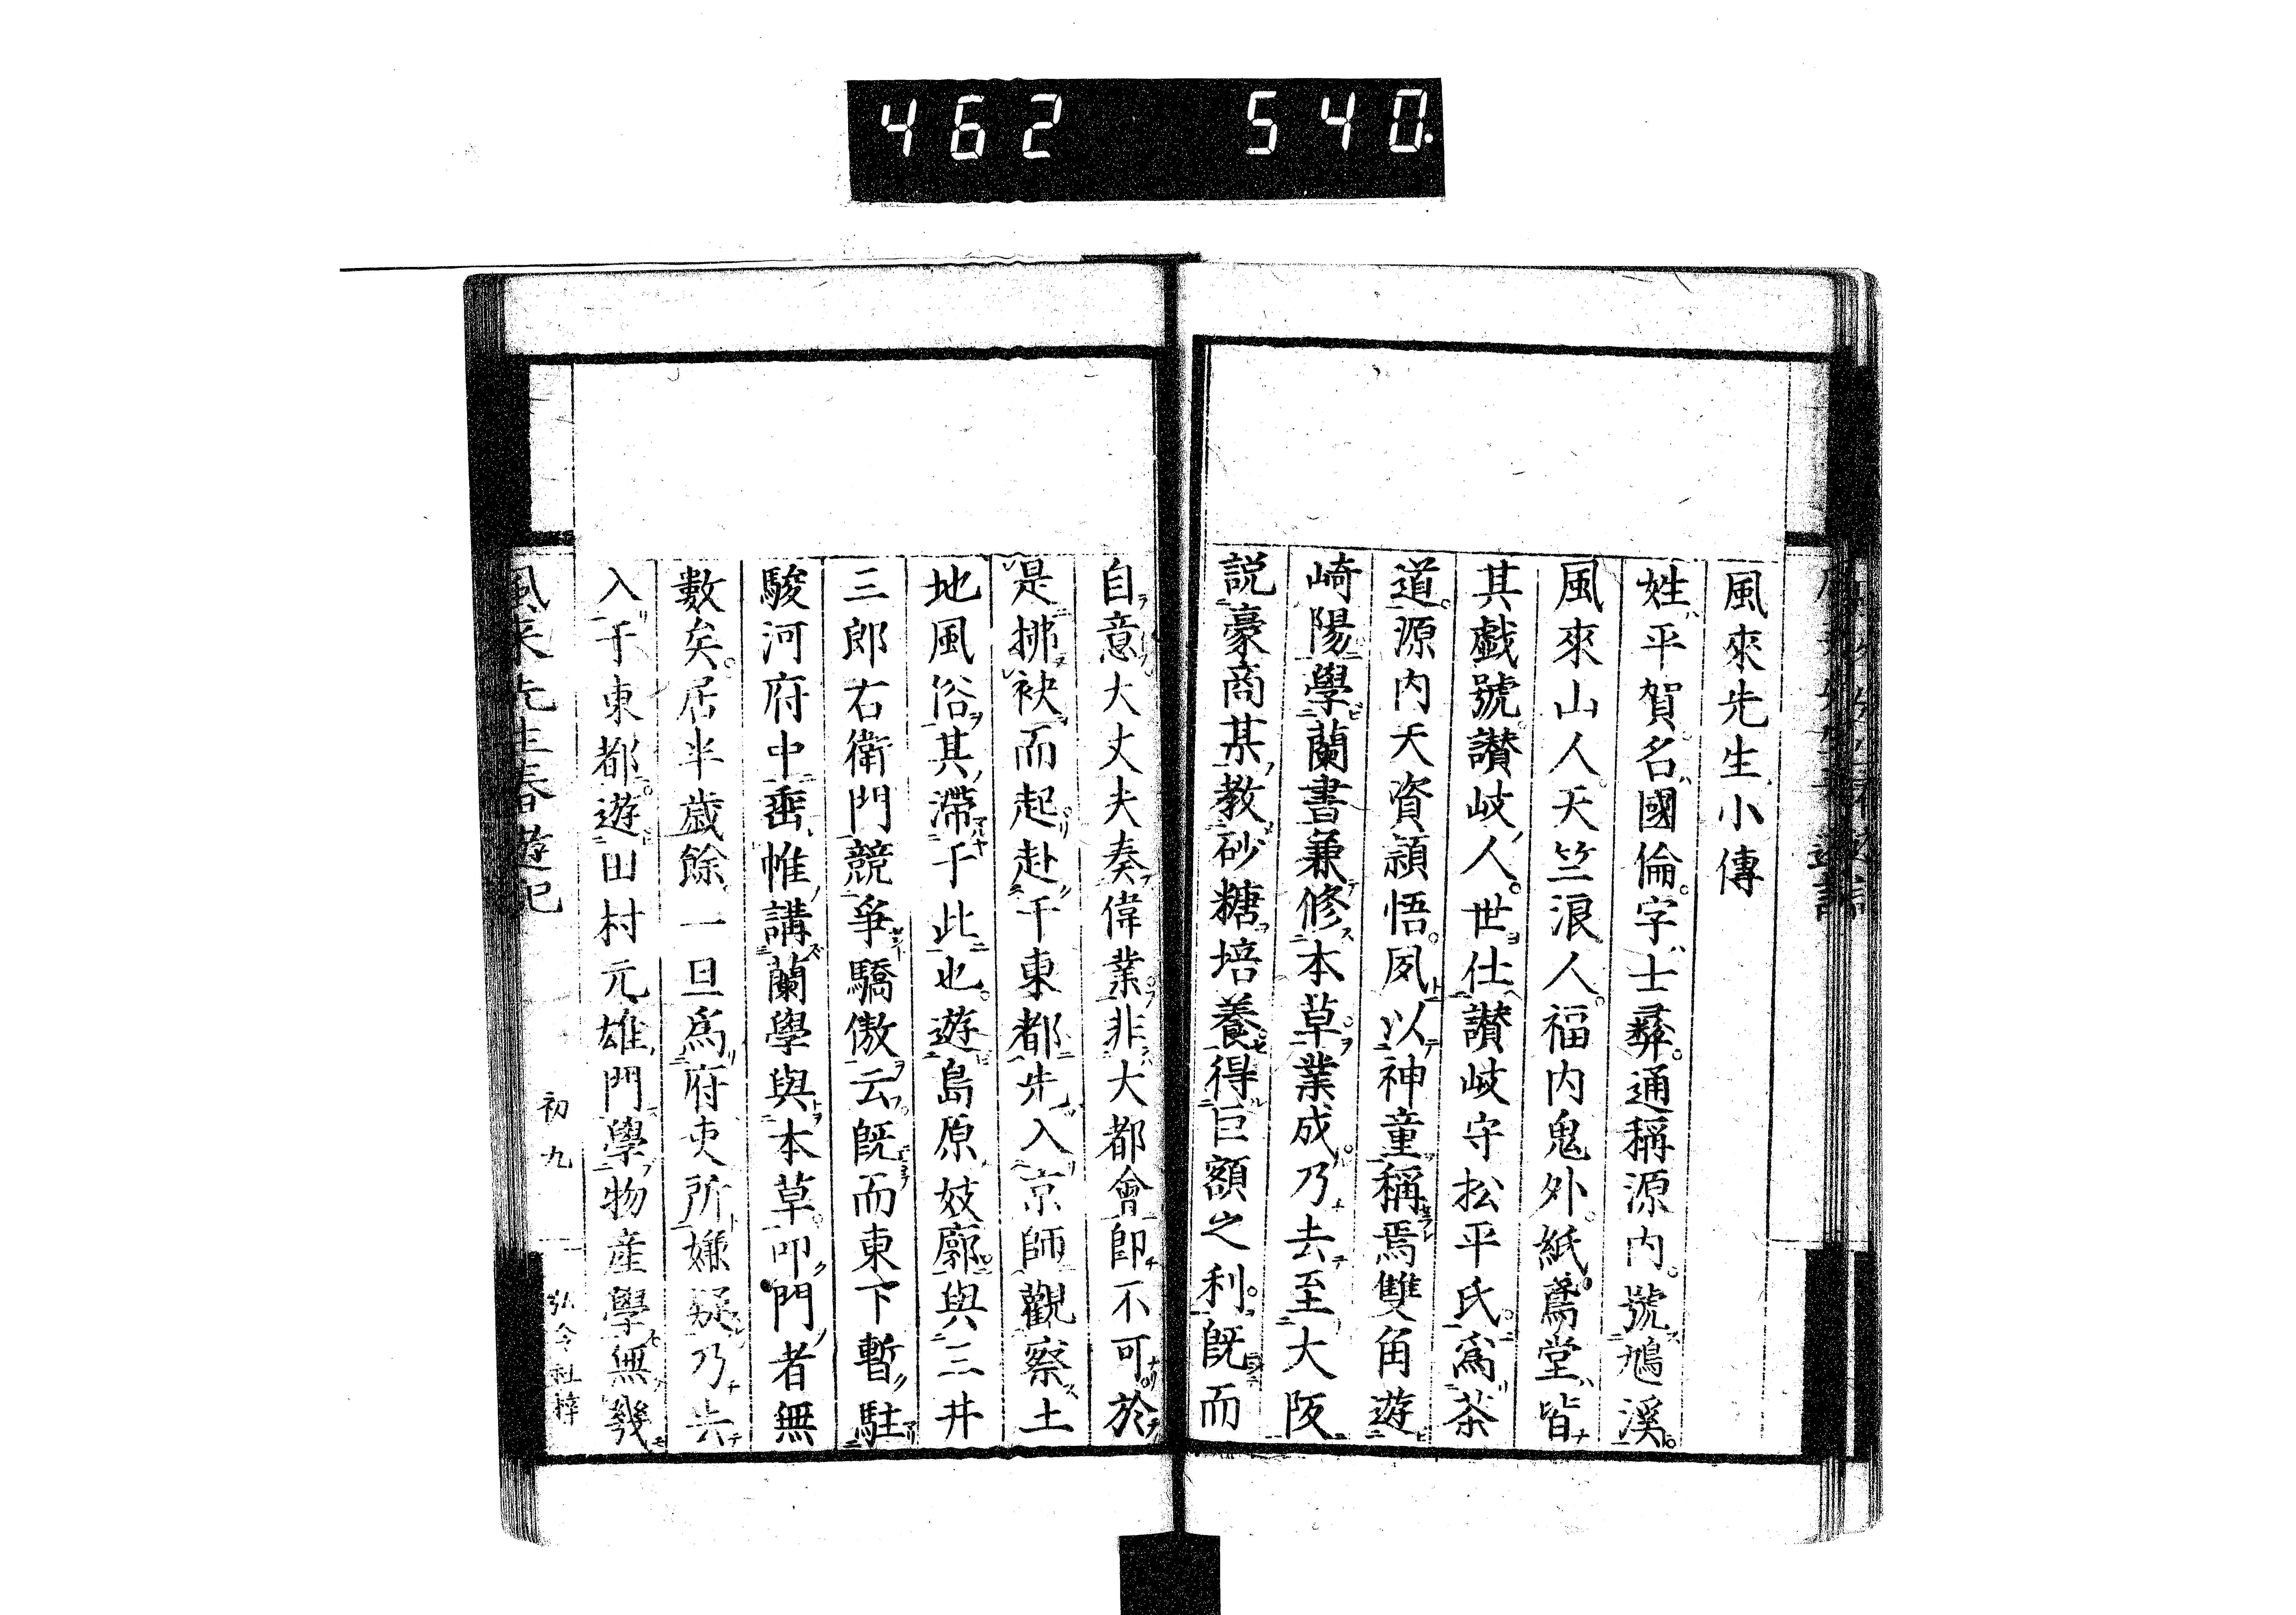 462 540.
風來先生小傳
姓平賀名國倫。字士彝。通稱源内。號鳩溪。
風來山人天竺浪人。福内鬼外。紙鳶堂皆
其戯號讃岐人。世仕讃岐守松平氏。爲茶
道。源内天資頴悟。夙以神童稱焉雙角遊
崎陽學蘭書兼修本草。業成。乃去至大阪
説豪商某教砂糖培養得巨額之利。既而
自意大丈夫奏偉業非大都會即不可於
是拂袂而起赴于東都先入京師觀察土
地風俗其滯于此也。遊島原妓廓與三井
三郎右衛門競爭驕傲云既而東下暫駐
駿河府中垂帷講蘭學與本草。叩門者無
數矣。居半歳餘一旦爲府吏所嫌疑乃去
入于東都。遊田村元雄門學物産學無幾
風來先生春遊記
初九
弘令社梓